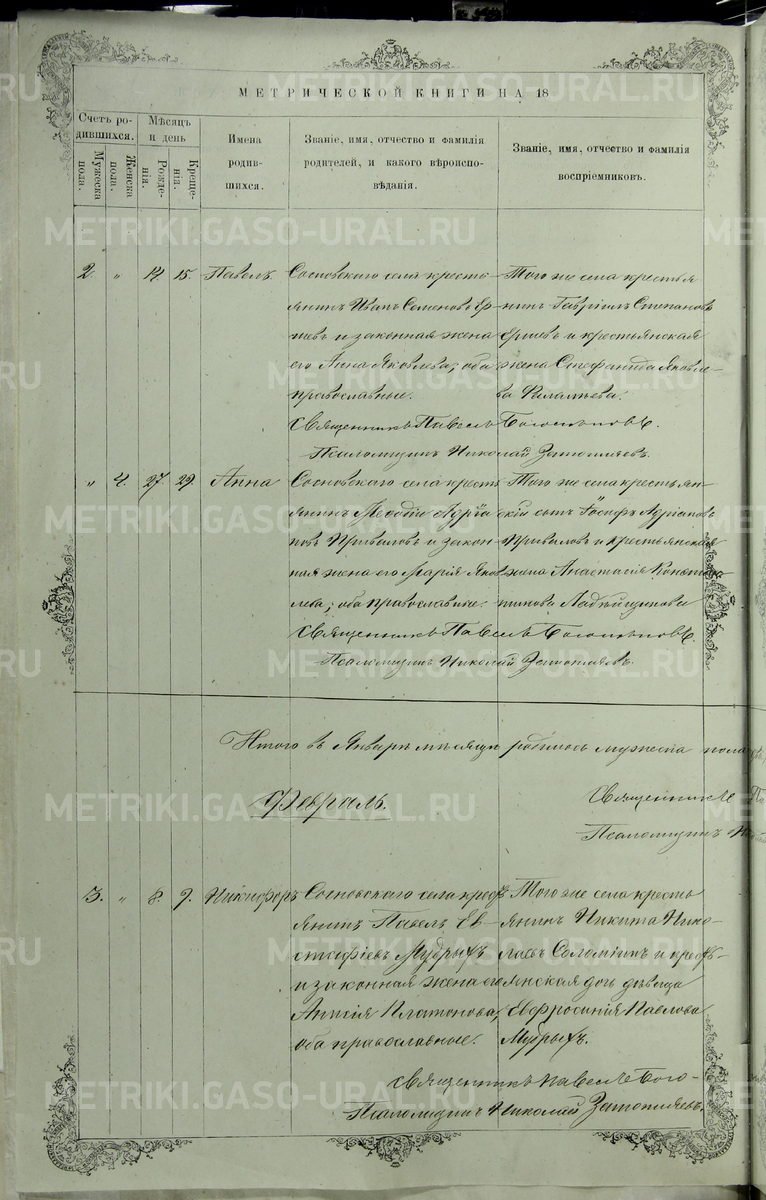 МЕТРИЧЕСКОЙ КНИГИ НА 18
Счетъ ро-
дившихся.
Мужеска пола.
Женска пола.
Мѣсяцъ
и день
Рожде-
нія.
Креще-
нія.
Имена
родив-
шихся.
Званіе, имя, отчество и фамилія
родителей, и какого вѣроиспо-
вѣданія.
Званіе, имя, отчество и фамилія
воспріемниковъ.
2. " 14. 15. Павелъ.
Сосновскаго села кресть-
янинъ Иванъ Семеновъ Ер-
шевъ и законная жена
его Анна Яковлева; оба
православные.
Того же села крестья-
нинъ Гавріилъ Степановъ
Ершевъ и крестьянская
жена Стефанида Яковле-
ва
Священникъ Павелъ
Псаломщикъ Николай
" 4. 27. 29. Анна
Сосновскаго села кресть-
янинъ Меѳодій
Приваловъ и закон-
ная жена его Марія Яков-
лева; оба православные.
Того же села крестьян-
скій сынъ Іосифъ
Приваловъ и крестьянская
жена Анастасія Констан-
тинова
Священникъ Павелъ
Псаломщикъ Николай
Итого въ Январѣ мѣсяцѣ родилось мужеска пола
Февраль.
Священникъ
Псаломщикъ
3. " 8. 9. Никифоръ
Сосновскаго села крест-
янинъ Павелъ Ев-
стафіевъ Мудрыхъ
и законная жена его
Платонова,
оба православные.
Того же села кресть-
янинъ Никита Нико-
лаевъ Соломинъ и кресть-
янская дочь дѣвица
Евфросинія Павлова
Мудрыхъ.
Священникъ Павелъ
Псаломщикъ Николай
METRIKI.GASO-URAL.RU